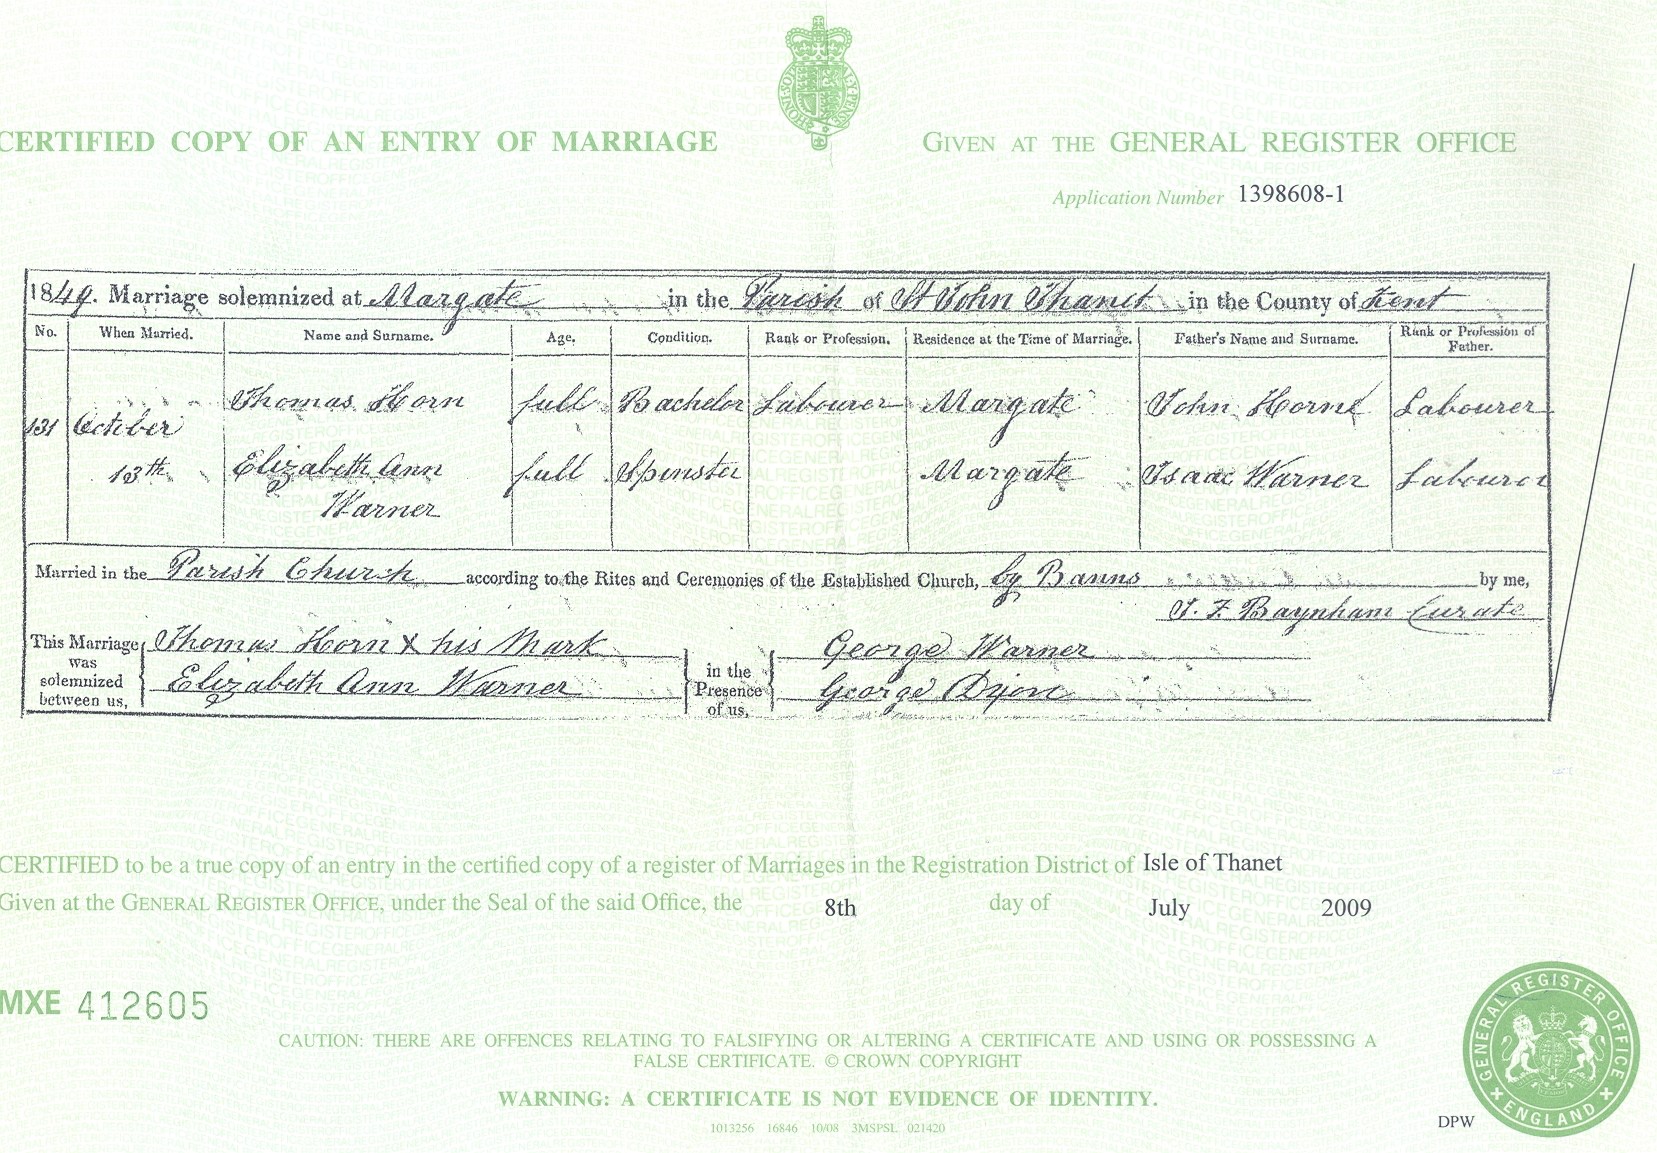 CERTIFIED COPY OF AN ENTRY OF MARRIAGE
GIVEN AT THE GENERAL REGISTER OFFICE
Application Number 1398608-1
1849. Marriage solemnized at Margate in the Parish of St John Thanet in the County of Kent
No. When Married. Name and Surname. Age. Condition. Rank or Profession. Residence at the Time of Marriage. Father's Name and Surname. Rank or Profession of Father.
131 October 13th
Thomas Horn full Bachelor Labourer Margate John Horne Labourer
Elizabeth Ann Warner full Spinster Margate Isaac Warner Labourer
Married in the Parish Church according to the Rites and Ceremonies of the Established Church, by Banns by me,
Baynham Curate
This Marriage was solemnized between us,
Thomas Horn X his Mark
Elizabeth Ann Warner
in the Presence of us,
George Warner
George Dixon
CERTIFIED to be a true copy of an entry in the certified copy of a register of Marriages in the Registration District of Isle of Thanet
Given at the GENERAL REGISTER OFFICE, under the Seal of the said Office, the 8th day of July 2009
MXE 412605
CAUTION: THERE ARE OFFENCES RELATING TO FALSIFYING OR ALTERING A CERTIFICATE AND USING OR POSSESSING A
FALSE CERTIFICATE. © CROWN COPYRIGHT
WARNING: A CERTIFICATE IS NOT EVIDENCE OF IDENTITY.
1013256 16846 10/08 3MSPSL 021420
DPW
GENERAL REGISTER OFFICE
ENGLAND